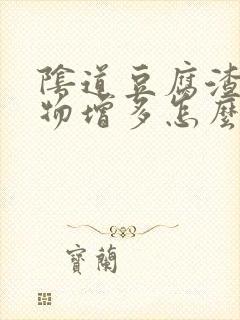 陰道豆腐渣
物增多怎麼
寶蘭